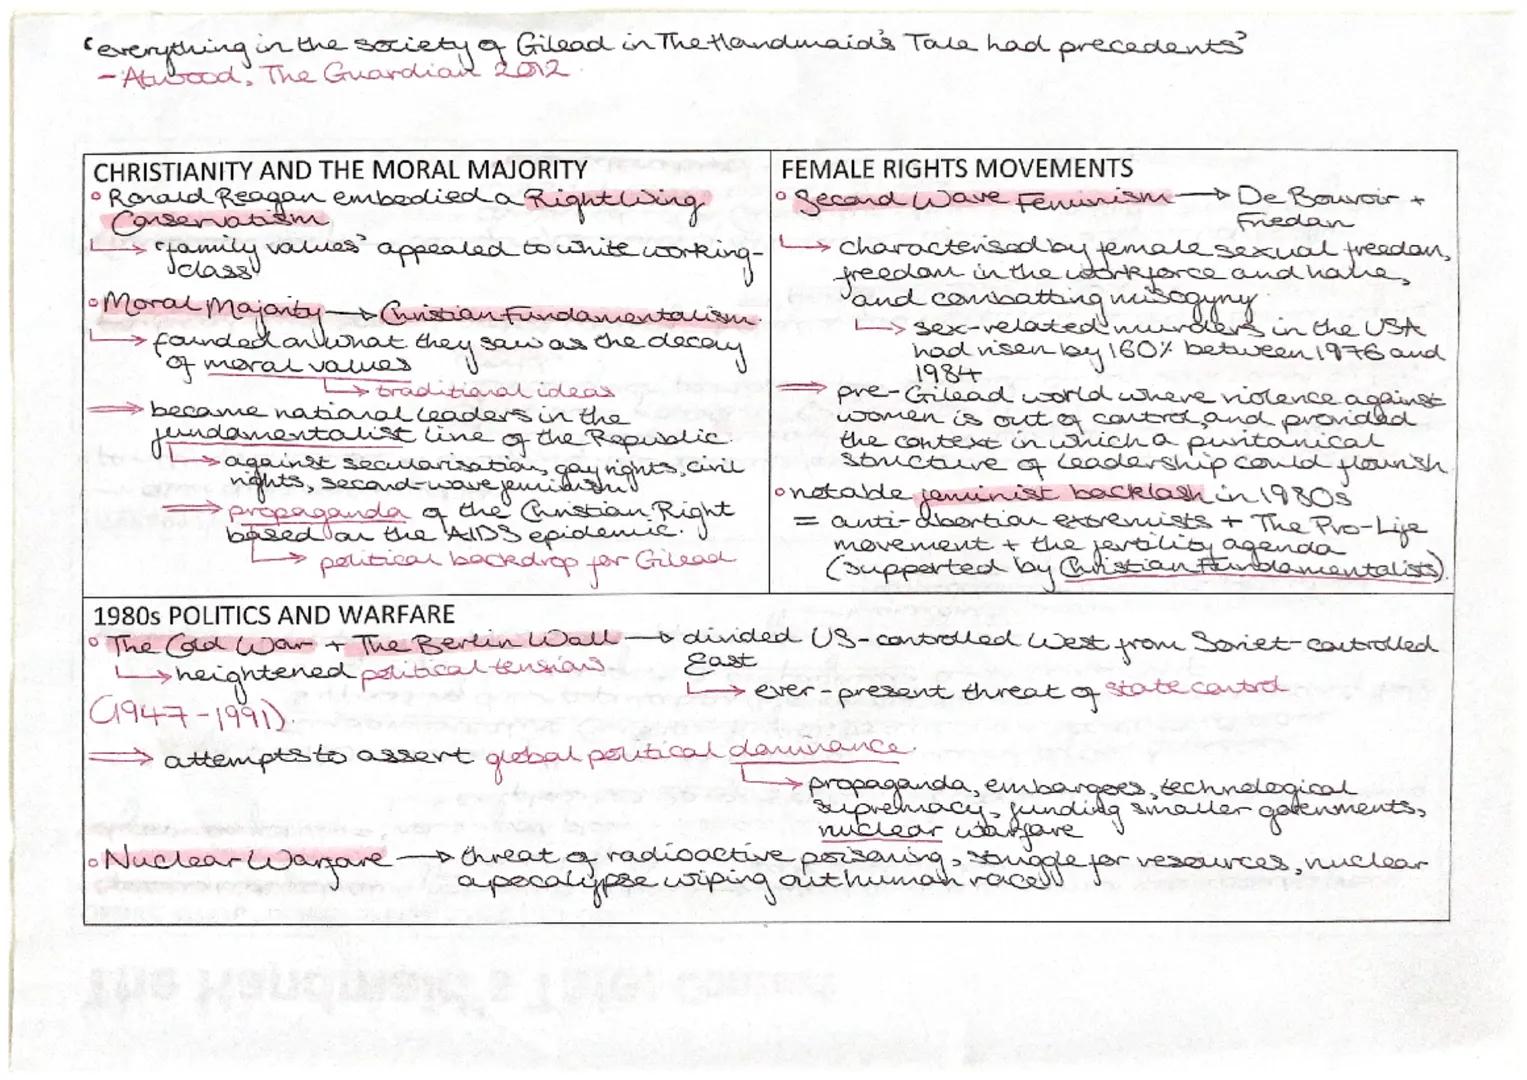 'everything in the society of Gilead in The Handmaid's Tale had precedents'
- Atwood, The Guardian 2012.
CHRISTIANITY AND THE MORAL MAJORITY
• Ronald Reagan embodied a Right Wing
Conservatism
↳ 'family values' appealed to white working-
class
• Moral Majority → Christian Fundamentalism.
↳ founded on what they saw as the decay
of moral values
↳ traditional ideas
⇒ became national leaders in the
fundamentalist line of the Republic.
↳ against secularisation, gay rights, civil
rights, second-wave feminism
⇒ propaganda of the Christian Right
based on the AIDS epidemic.
↳ political backdrop for Gilead
FEMALE RIGHTS MOVEMENTS
• Second Wave Feminism → De Bouvoir +
Friedan
↳ characterised by female sexual freedom,
freedom in the workforce and home,
and combatting misogyny.
↳ sex-related murders in the USA
had risen by 160% between 1976 and
1984
⇒ pre-Gilead world where violence against
women is out of control, and provided
the context in which a puritanical
structure of leadership could flourish.
• notable feminist backlash in 1980s
= anti-abortion extremists + The Pro-Life
movement + the fertility agenda
(supported by Christian Fundamentalists).
1980s POLITICS AND WARFARE
• The Cold War + The Berlin Wall → divided US-controlled West from Soviet-controlled
East
↳ heightened political tensions
↳ ever-present threat of state control
(1947-1991).
⇒ attempts to assert global political dominance.
↳ propaganda, embargoes, technological
supremacy, funding smaller governments,
nuclear warfare
• Nuclear Warfare → threat of radioactive poisoning, struggle for resources, nuclear
apocalypse wiping out human race